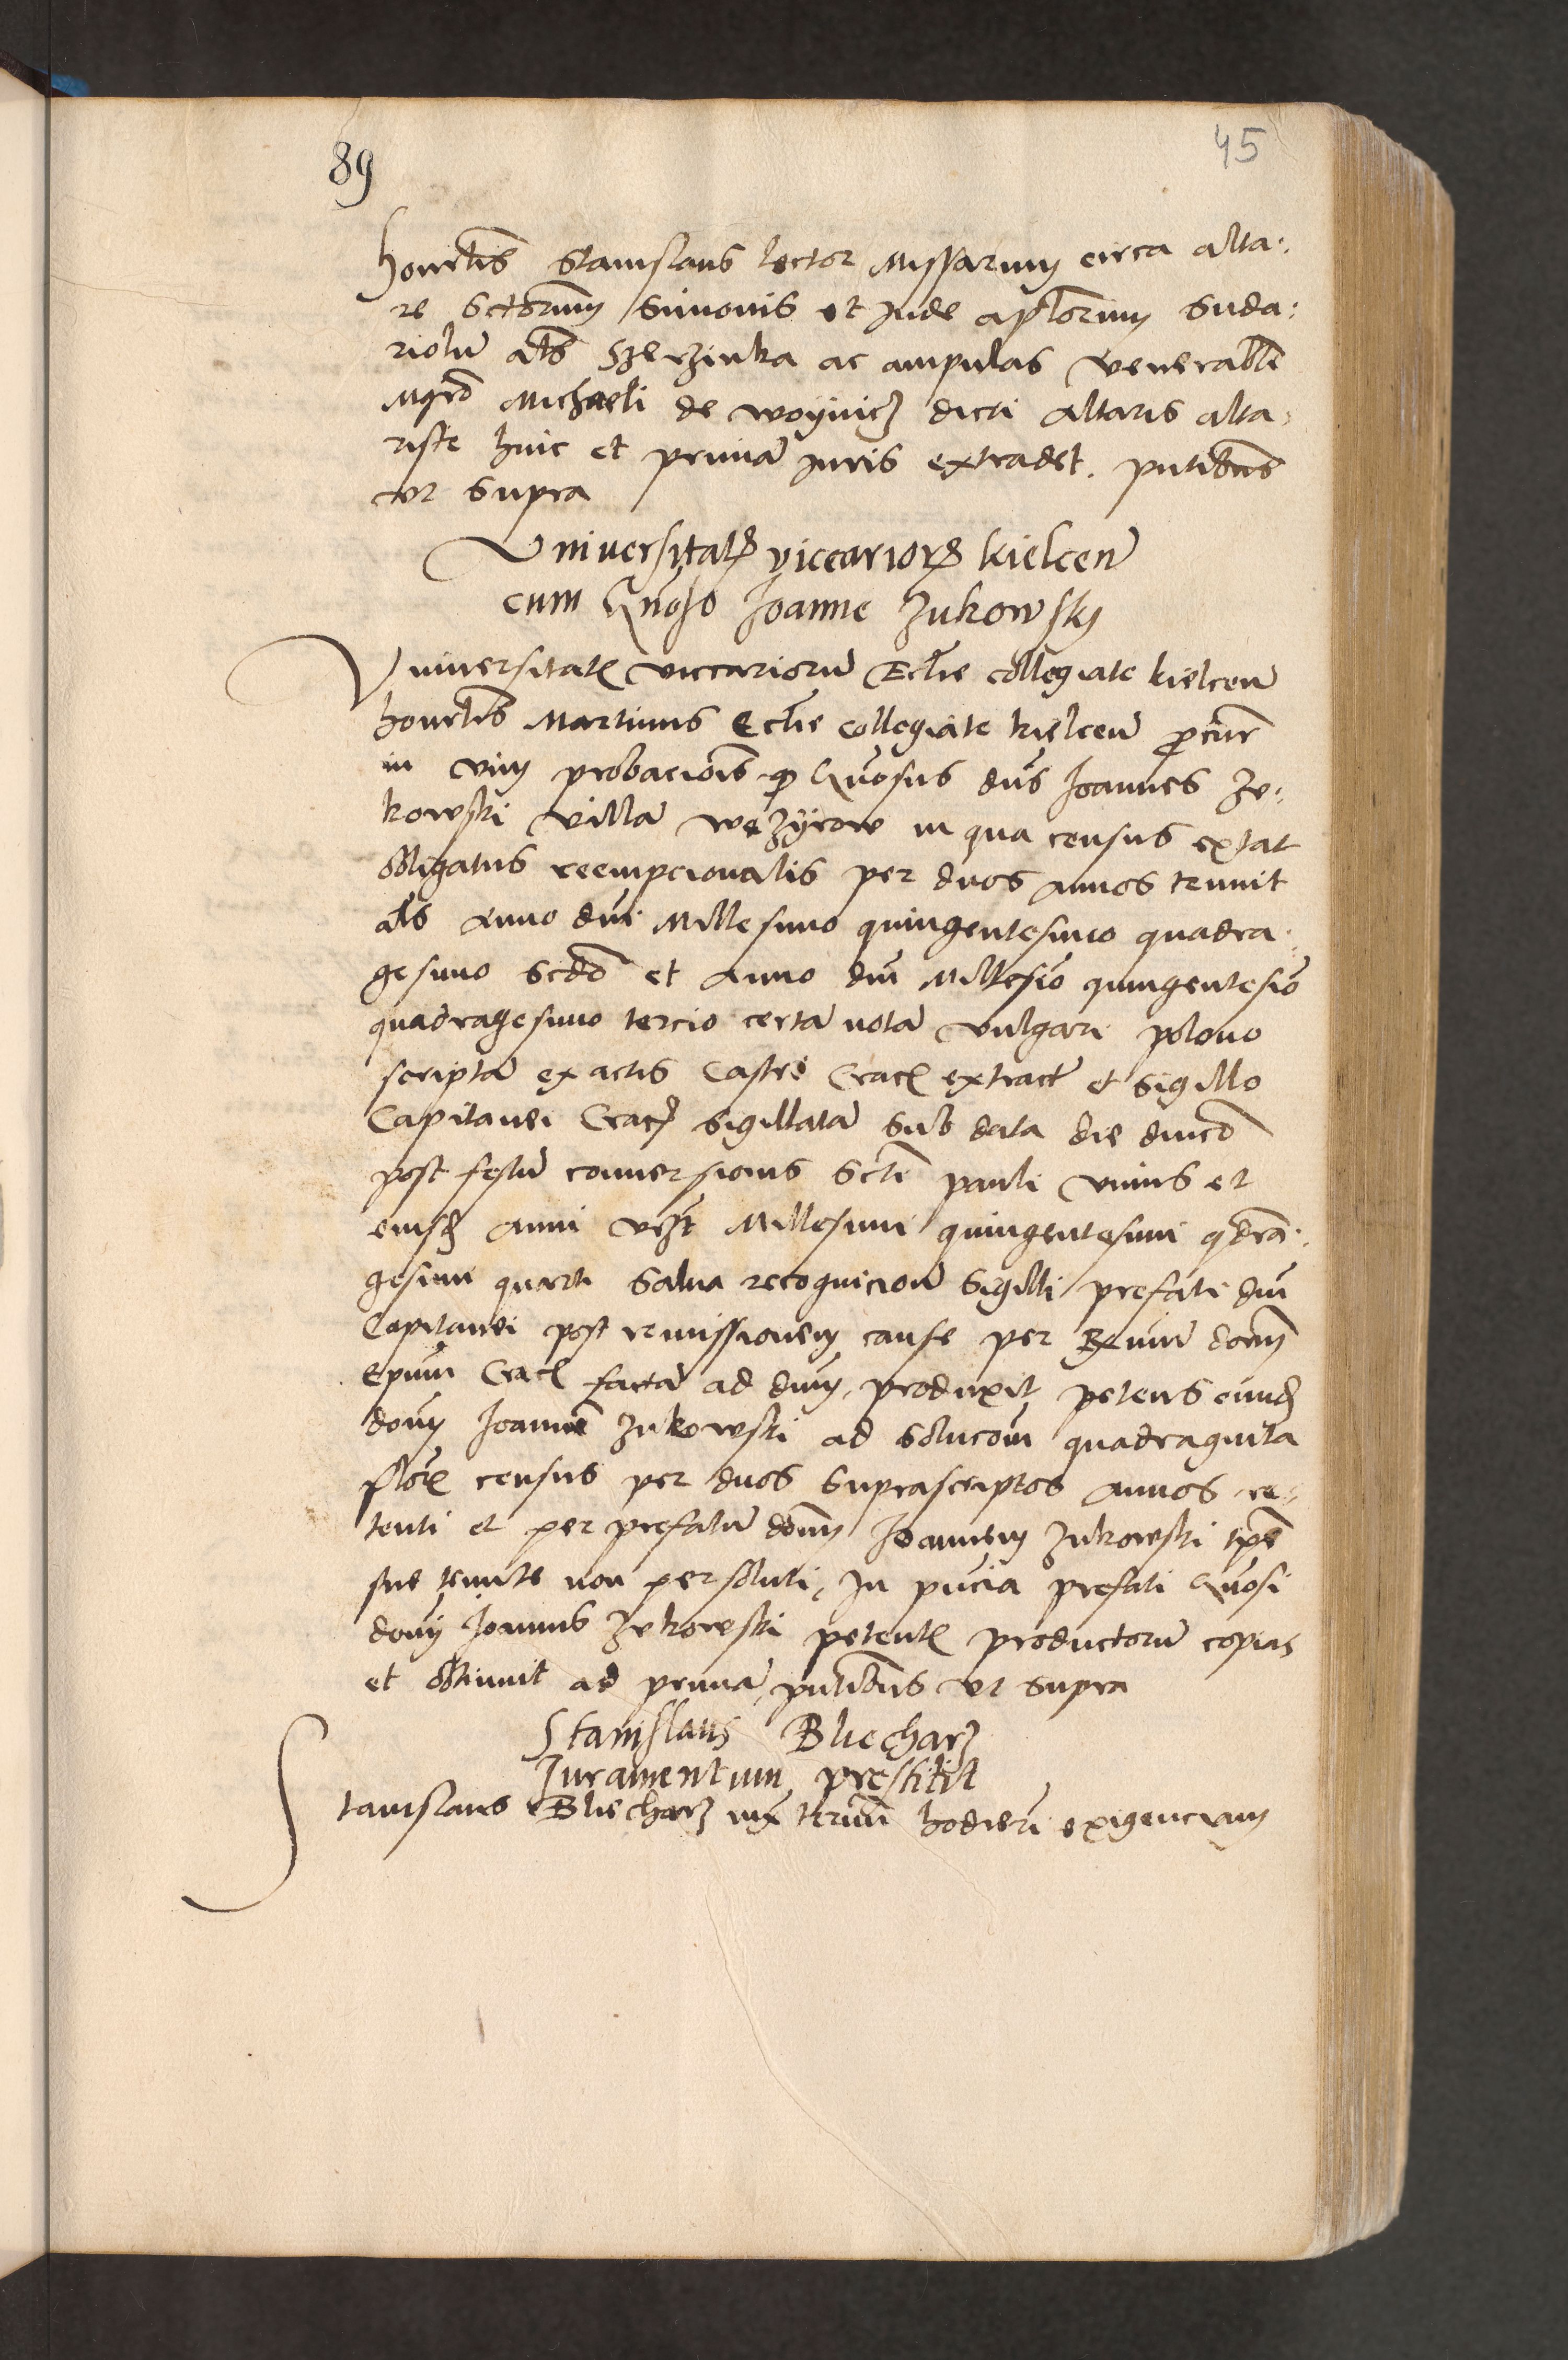 89
45
honorabilis Stanislaus lector Missarum circa alta:
re Sctorum Simonis et Jude aplorum Suda:
riolum als Szerzinka ac ampulas venerabli
Mgro Michaeli de Woynicz dicti altaris alta:
riste hinc et primam Juris extradet. pntibus
vt supra
Vniversitatis viccariorum kielcen
cum Gnoso Joanne Zukowsky
Vniversitatis viccariorum Ecclie collegiate kielcen
honorlis Martinus Ecclie Collegiate kielcen procur
in vim probacionis quod Gnosus dns Joannes Zu:
kowski villam Wezyrow in qua census extat
obligatus reempcionalis per duos annos tenuit
als Anno dni Millesimo quingentesimo quadra:
gesimo scdo et anno dni Millesio quingentesio
quadragesimo tercio certam notam vulgari polono
scriptam ex actis Castri Crac extract et sigillo
Capitanei Crac sigillatam sub data die dnico
post festum conversionis Scti pauli vnius et
eiusdem anni vezt Millesimi quingentesimi qdra:
gesimi quarti salua recognicione Sigilli prefati dni
Capitanei post remissionem cause per Rxmum domm
Epum Crac factam ad dnum produxit petens eundem
domm Joannem Zukowski ad solucom quadraginta
flor census per duos suprascriptos annos re:
tenti et per prefatum domm Joannem Zukowski tpe
sue tenute non persoluti, In pncia prefati Gnosi
domi Joannis Zukowski petentis productorum copias
et obtinuit ad primam, pntibus vt supra
Stanislaus Bliecharz
Juramentum prestitit
Stanislaus Bliecharz iux termi hodierni exigenciam